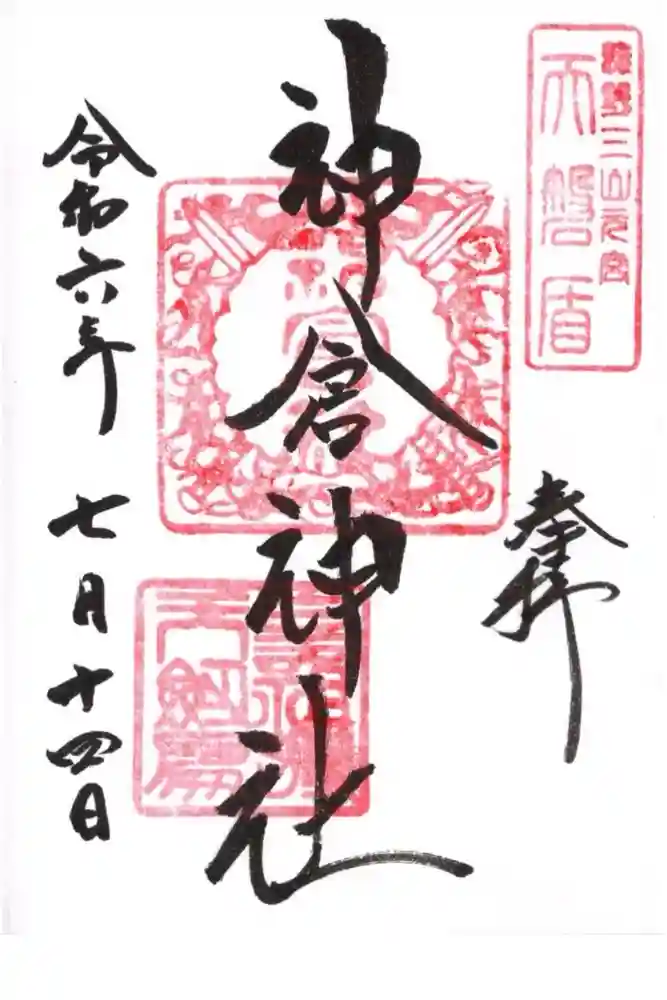 熊野三山元宮
天磐盾
奉拝
神倉神社
令和六年
七月十四日